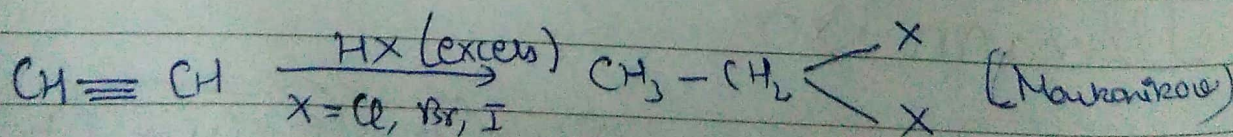 CH≡CH \xrightarrow[X = Cl, Br, I]{HX (excess)} CH₃ – CH₂ < X X (Markonikow)